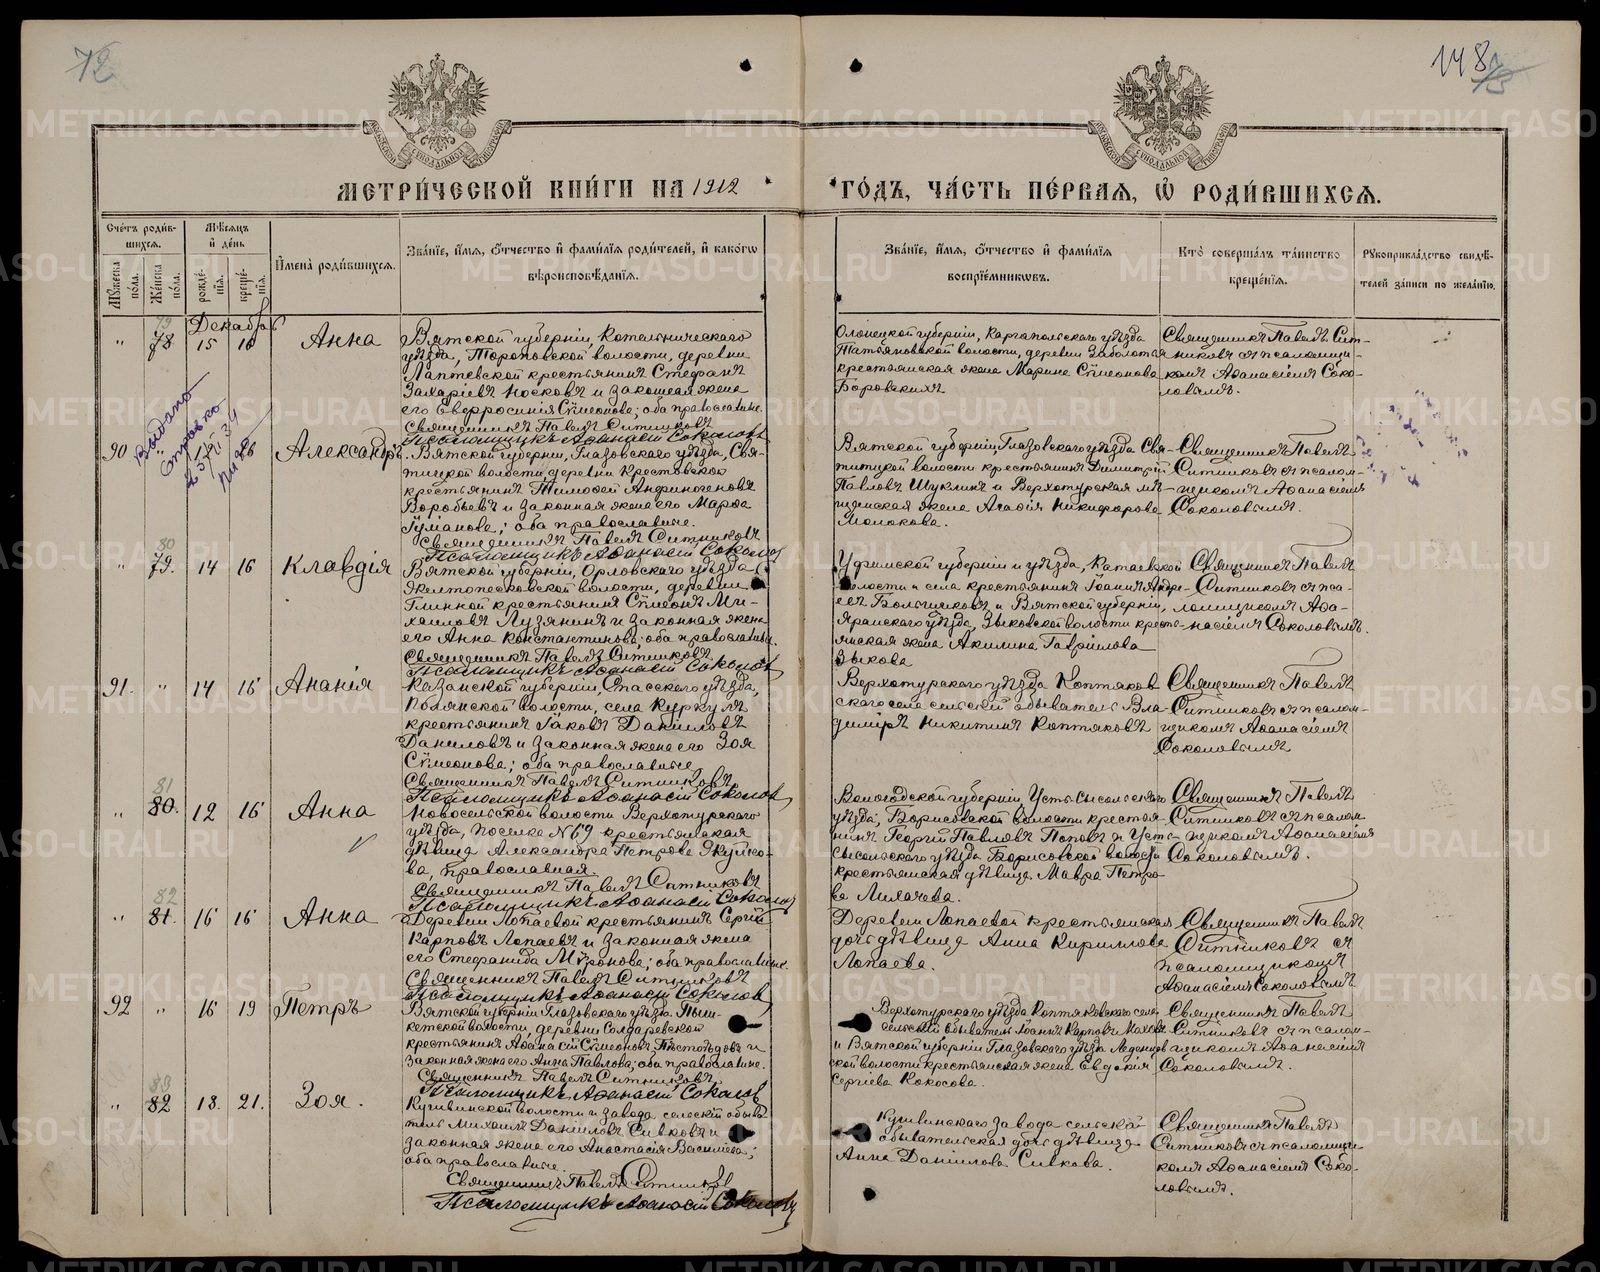 72
148
МОСКОВСКОЙ СѴНОДАЛЬНОЙ ТИПОГРАФІИ
МОСКОВСКОЙ СѴНОДАЛЬНОЙ ТИПОГРАФІИ
МЕТРИ́ЧЕСКОЙ КНИ́ГИ НА 1912
ГО́ДЪ, ЧА́СТЬ ПЕ́РВАЯ, Ѽ РОДИ́ВШИХСЯ.
Счétъ родив-
шихся.
Мѣсяцъ
и день
Мужеска пола.
Женска пола.
рожде-
нія.
креще-
нія.
Имена родившихся.
Званіе, имя, отчество и фамилія родителей, и какого
вѣроисповѣданія.
Званіе, имя, отчество и фамилія
воспріемниковъ.
Кто совершалъ таинство
крещенія.
Рукоприкладство свидѣ-
телей записи по желанію.
Декабрь
79
" 78 15 16 Анна
Вятской губерніи, Котельническаго
уѣзда, Тороповской волости, деревни
Лаптевской крестьянинъ Стефанъ
Захаріевъ Носковъ и законная жена
его Евфросинія Сѷмеонова; оба православные.
Священникъ Павелъ Ситниковъ
Псаломщикъ Аѳанасій Соколовъ
Олонецкой губерніи, Каргопольскаго уѣзда
волости, деревни
крестьянская жена Марина Сѷмеонова
Боровскихъ
Священникъ Павелъ Сит-
никовъ съ псаломщи-
комъ Аѳанасіемъ Соко-
ловымъ.
Выдано
справка
90 " 16 Александръ.
Вятской губерніи, Глазовскаго уѣзда, Свя-
тицкой волости, деревни Крестовской
крестьянинъ Тимоѳей Анфиногеновъ
Воробьевъ и законная жена его Марѳа
оба православные.
Священникъ Павелъ Ситниковъ
Псаломщикъ Аѳанасій Соколовъ
Вятской губерніи, Глазовскаго уѣзда Свя-
тицкой волости крестьянинъ Димитрій
Павловъ Шуклинъ и Верхотурская мѣ-
щанская жена Агаѳія Никифорова
Молокова.
Священникъ Павелъ
Ситниковъ съ псалом-
щикомъ Аѳанасіемъ
Соколовымъ.
80
" 79. 14 16 Клавдія
Вятской губерніи, Орловскаго уѣзда
Желтопесковской волости, деревни
Глинной крестьянинъ Сѷмеонъ Ми-
хаиловъ Лузянинъ и законная жена
его Анна Константинова; оба православные.
Священникъ Павелъ Ситниковъ
Псаломщикъ Аѳанасій Соколовъ
Уфимской губерніи и уѣзда, Катаевской
волости и села крестьянинъ Іоаннъ Андре-
евъ Большаковъ и Вятской губерніи,
Яранскаго уѣзда, Зыковской волости кресть-
янская жена Акилина Гавріилова
Зыкова
Священникъ Павелъ
Ситниковъ съ пса-
ломщикомъ Аѳа-
насіемъ Соколовымъ.
91. " 14 16 Ананія
Казанской губерніи, Спасскаго уѣзда,
Полянской волости, села Куркуль
крестьянинъ Іаковъ Даніиловъ
Даниловъ и законная жена его Зоя
Сѷмеонова; оба православные
Священникъ Павелъ Ситниковъ
Псаломщикъ Аѳанасій Соколовъ
Верхотурскаго уѣзда Коптяков-
скаго села сельскій обыватель Вла-
диміръ Никитинъ Коптяковъ
Священникъ Павелъ
Ситниковъ съ псалом-
щикомъ Аѳанасіемъ
Соколовымъ
81
" 80. 12 16 Анна
Новосельской волости Верхотурскаго
уѣзда, поселка №69 крестьянская
дѣвица Александра Петрова Якуно-
ва, православная.
Священникъ Павелъ Ситниковъ
Псаломщикъ Аѳанасій Соколовъ
Вологодской губерніи, Устьсысольскаго
уѣзда, Борисовской волости крестья-
нинъ Георгій Павловъ Поповъ и Усть-
сысольскаго уѣзда Борисовской волости
крестьянская дѣвица Мавра Петро-
ва Лихачева.
Священникъ Павелъ
Ситниковъ съ псалом-
щикомъ Аѳанасіемъ
Соколовымъ.
82
" 81. 16 16 Анна
Деревни Лопаевой крестьянинъ Сергій
Карповъ Лопаевъ и законная жена
его Стефанида Миронова; оба православные.
Священникъ Павелъ Ситниковъ
Псаломщикъ Аѳанасій Соколовъ
Деревни Лопаевой крестьянская
дочь дѣвица Анна Кириллова
Лопаева.
Священникъ Павелъ
Ситниковъ съ
псаломщикомъ
Аѳанасіемъ Соколовымъ
92 " 16 19 Петръ
Вятской губерніи Глазовскаго уѣзда
волости, деревни
крестьянинъ Аѳанасій Сѷмеоновъ и
законная жена его Анна Павлова; оба православные.
Священникъ Павелъ Ситниковъ.
Псаломщикъ Аѳанасій Соколовъ
Верхотурскаго уѣзда Коптяковскаго села
сельскій обыватель Іоаннъ Карповъ
и Вятской губерніи Глазовскаго уѣзда
волости крестьянская жена Евдокія
Сергіева Кокосова.
Священникъ Павелъ
Ситниковъ съ псалом-
щикомъ Аѳанасіемъ
Соколовымъ.
83
" 82 18. 21. Зоя.
Кушвинской волости и завода сельскій обыва-
тель Михаилъ Даніиловъ Сивковъ и
законная жена его Анастасія Васильева;
оба православные.
Священникъ Павелъ Ситниковъ
Псаломщикъ Аѳанасій Соколовъ
Кушвинскаго завода сельскаго
обывательская дочь дѣвица
Анна Даніилова Сивкова.
Священникъ Павелъ
Ситниковъ съ псаломщи-
комъ Аѳанасіемъ Соко-
ловымъ.